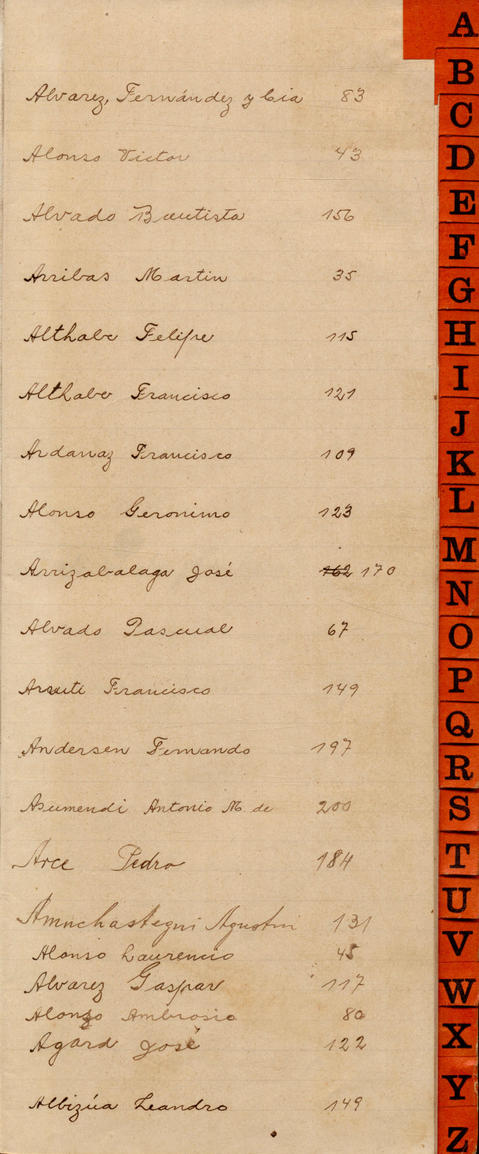 Alvarez, Fernández y Cia 83
Alonso Victor 43
Alvado Bautista 156
Arribas Martin 35
Althabe Felipe 115
Althabe Francisco 121
Ardanaz Francisco 109
Alonso Geronimo 123
Arrizabalaga José 162 170
Alvado Pascual 67
Francisco 149
Andersen Fernando 197
Asumendi Antonio M. de 200
Arce Pedro 184
Amuchastegui Agustin 131
Alonso Laurencio 45
Alvarez Gaspar 117
Alonzo Ambrosio 80
Agard José 122
Albizúa Leandro 149
A
B
C
D
E
F
G
H
I
J
K
L
M
N
O
P
Q
R
S
T
U
V
W
X
Y
Z